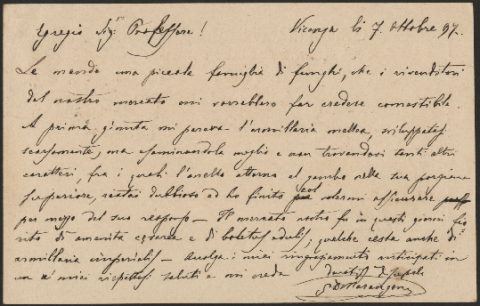 Egregio Sig. Professore! Vicenza li 7. Ottobre 97.
Le mando una piccola famiglia di funghi, che i rivenditori
del nostro mercato mi vorrebbero far credere comestibile.
A prima giunta mi pareva l'armillaria mellea, sviluppatasi
scarsamente, ma esaminandola meglio e non trovandovi tanti altri
caratteri, fra i quali l'anello attorno al gambo nella sua porzione
superiore, restai dubbioso ed ho finito col volermi assicurare
per mezzo del suo responso – Il mercato nostro fu in questi giorni for
nito di amanita cesarea e di boletus edulis, qualche cesta anche di
armillaria imperialis – Accolga i miei ringraziamenti anticipati in
un a' miei rispettosi saluti e mi creda